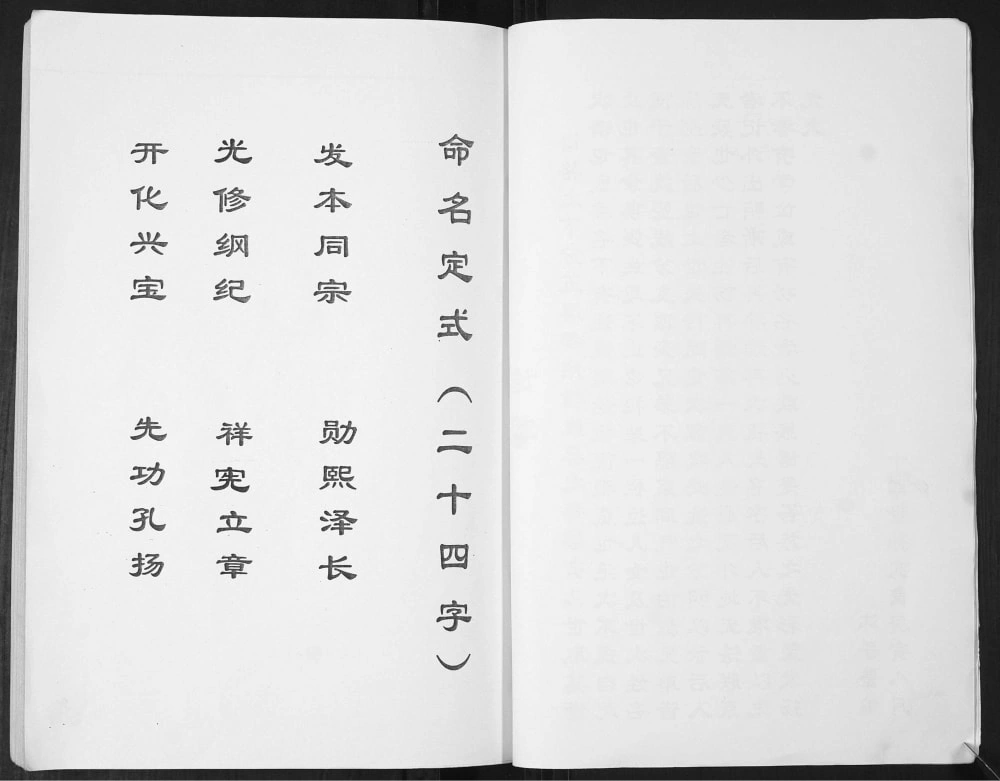 命名定式（二十四字）
发本同宗　勋熙泽长
光修纲纪　祥宪立章
开化兴宝　先功孔扬